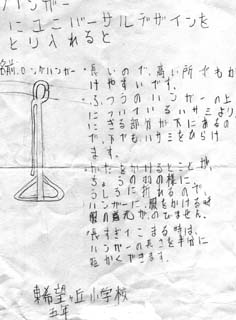 ハンガー
にユニバーサルデザインを
とり入れると
名前：ロングハンガー
・長いので、高い所でもか
けやすいです。
・ふつうのハンガーの上
についているハサミより、
にぎる部分が下にあるの
で、下でもハサミをひらけ
ます。
・かたをかけるところは、
ちょうの羽の様に
うしろに折れるので、
ハンガーに、服をかける時
服の首元がのびません。
・長すぎてこまる時は、
ハンガーの長さを半分に
短かくできます。
東希望ヶ丘小学校
五年